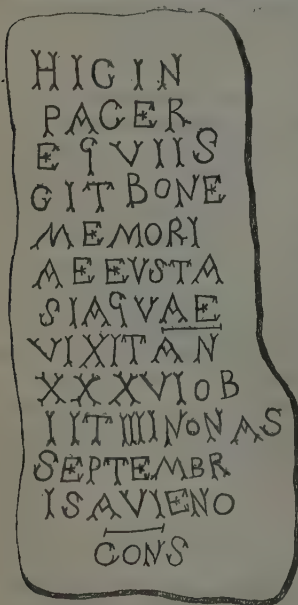 HIC IN
PACE R
EQVIIS
GIT BONE
MEMORI
AE EVSTA
SIA QVAE
VIXIT AN
XXXVI OB
IIT IIII NONAS
SEPTEMBR
IS AVIENO
CONS